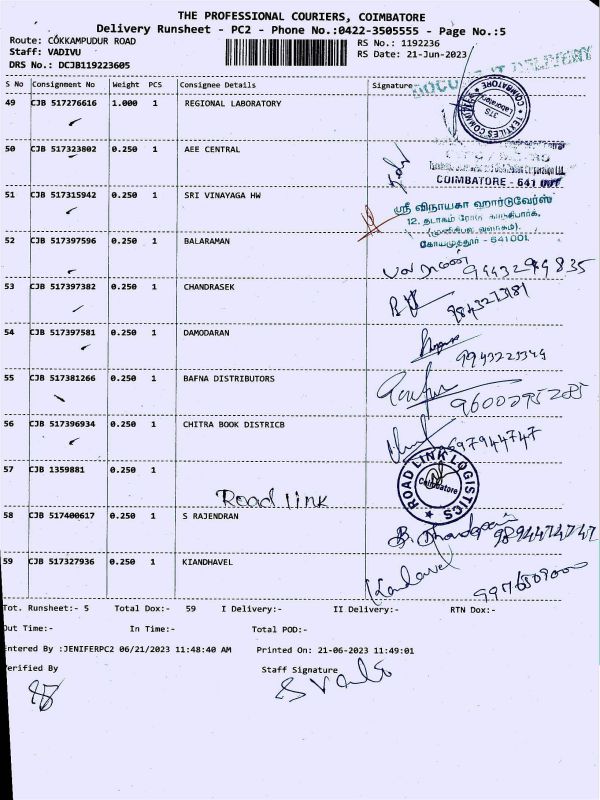 THE PROFESSIONAL COURIERS, COIMBATORE
Delivery Runsheet - PC2 - Phone No.:0422-3505555 - Page No.:5
Route: COKKAMPUDUR ROAD RS No.: 1192236
Staff: VADIVU RS Date: 21-Jun-2023
DRS No.: DCJB119223605
DOCUMENT DELIVERY
S No Consignment No Weight PCS Consignee Details Signature
49 CJB 517276616 1.000 1 REGIONAL LABORATORY
TEXTILES COMMITTEE Laboratory COIMBATORE
50 CJB 517323802 0.250 1 AEE CENTRAL
COIMBATORE - 641
51 CJB 517315942 0.250 1 SRI VINAYAGA HW
ஸ்ரீ விநாயகா ஹார்டுவேர்ஸ்
12, தடாகம் ரோடு
கோயமுத்தூர் - 641001.
52 CJB 517397596 0.250 1 BALARAMAN
9443299835
53 CJB 517397382 0.250 1 CHANDRASEK
9843273181
54 CJB 517397581 0.250 1 DAMODARAN
9943225349
55 CJB 517381266 0.250 1 BAFNA DISTRIBUTORS
9600295285
56 CJB 517396934 0.250 1 CHITRA BOOK DISTRICB
9697944747
57 CJB 1359881 0.250 1
Road link
ROAD LINK LOGISTICS Coimbatore
58 CJB 517400617 0.250 1 S RAJENDRAN
9894474747
59 CJB 517327936 0.250 1 KIANDHAVEL
Kandavel 9976509000
Tot. Runsheet:- 5 Total Dox:- 59 I Delivery:- II Delivery:- RTN Dox:-
Out Time:- In Time:- Total POD:-
Entered By :JENIFERPC2 06/21/2023 11:48:40 AM Printed On: 21-06-2023 11:49:01
Verified By Staff Signature